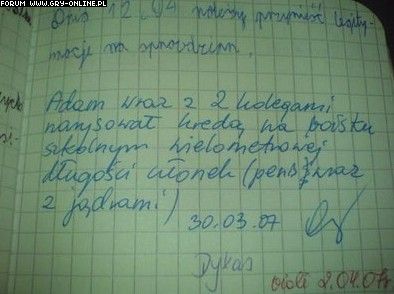 FORUM WWW.GRY-ONLINE.PL
Dnia 12.04 należy przynieść legity-
mację na sprawdzian.
Adam wraz z 2 kolegami
narysował kredą na boisku
szkolnym wielometrowej
długości członek (penis wraz
z jądrami)
30.03.07
Dykas
2.04.07r